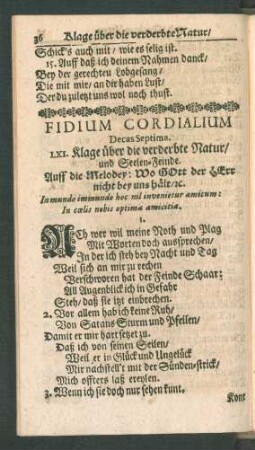 36 Klage über die verderbte Natur/
Schick's auch mit/ wie es selig ist.
15. Auff daß ich deinem Nahmen danck/
Bey der gerechten Lobgesang/
Die mit mir/ an dir haben Lust/
Der du zuletzt uns wol noch thust.
FIDIUM CORDIALIUM
Decas Septima.
LXI. Klage über die verderbte Natur/
und Seelen-Feinde.
Auff die Melodey: Wo GOtt der HErr
nicht bey uns hält/ꝛc.
In mundo immundo hoc nil invenietur amicum:
In cœlis nobis optima amicitia.
1.
ACh wer wil meine Noth und Plag
Mit Worten doch aussprechen/
In der ich steh bey Nacht und Tag
Weil sich an mir zu rechen
Verschworen hat der Feinde Schaar:
All Augenblick ich in Gefahr
Steh/ daß sie itzt einbrechen.
2. Vor allem hab ich keine Ruh/
Von Satans Sturm und Pfeilen/
Damit er mir hart setzet zu.
Daß ich von seinen Seilen/
Weil er in Glück und Ungelück
Mir nachstell't mit der Sünden-strick/
Mich offters laß ereylen.
3. Wenn ich sie doch nur sehen kunt.
Kont